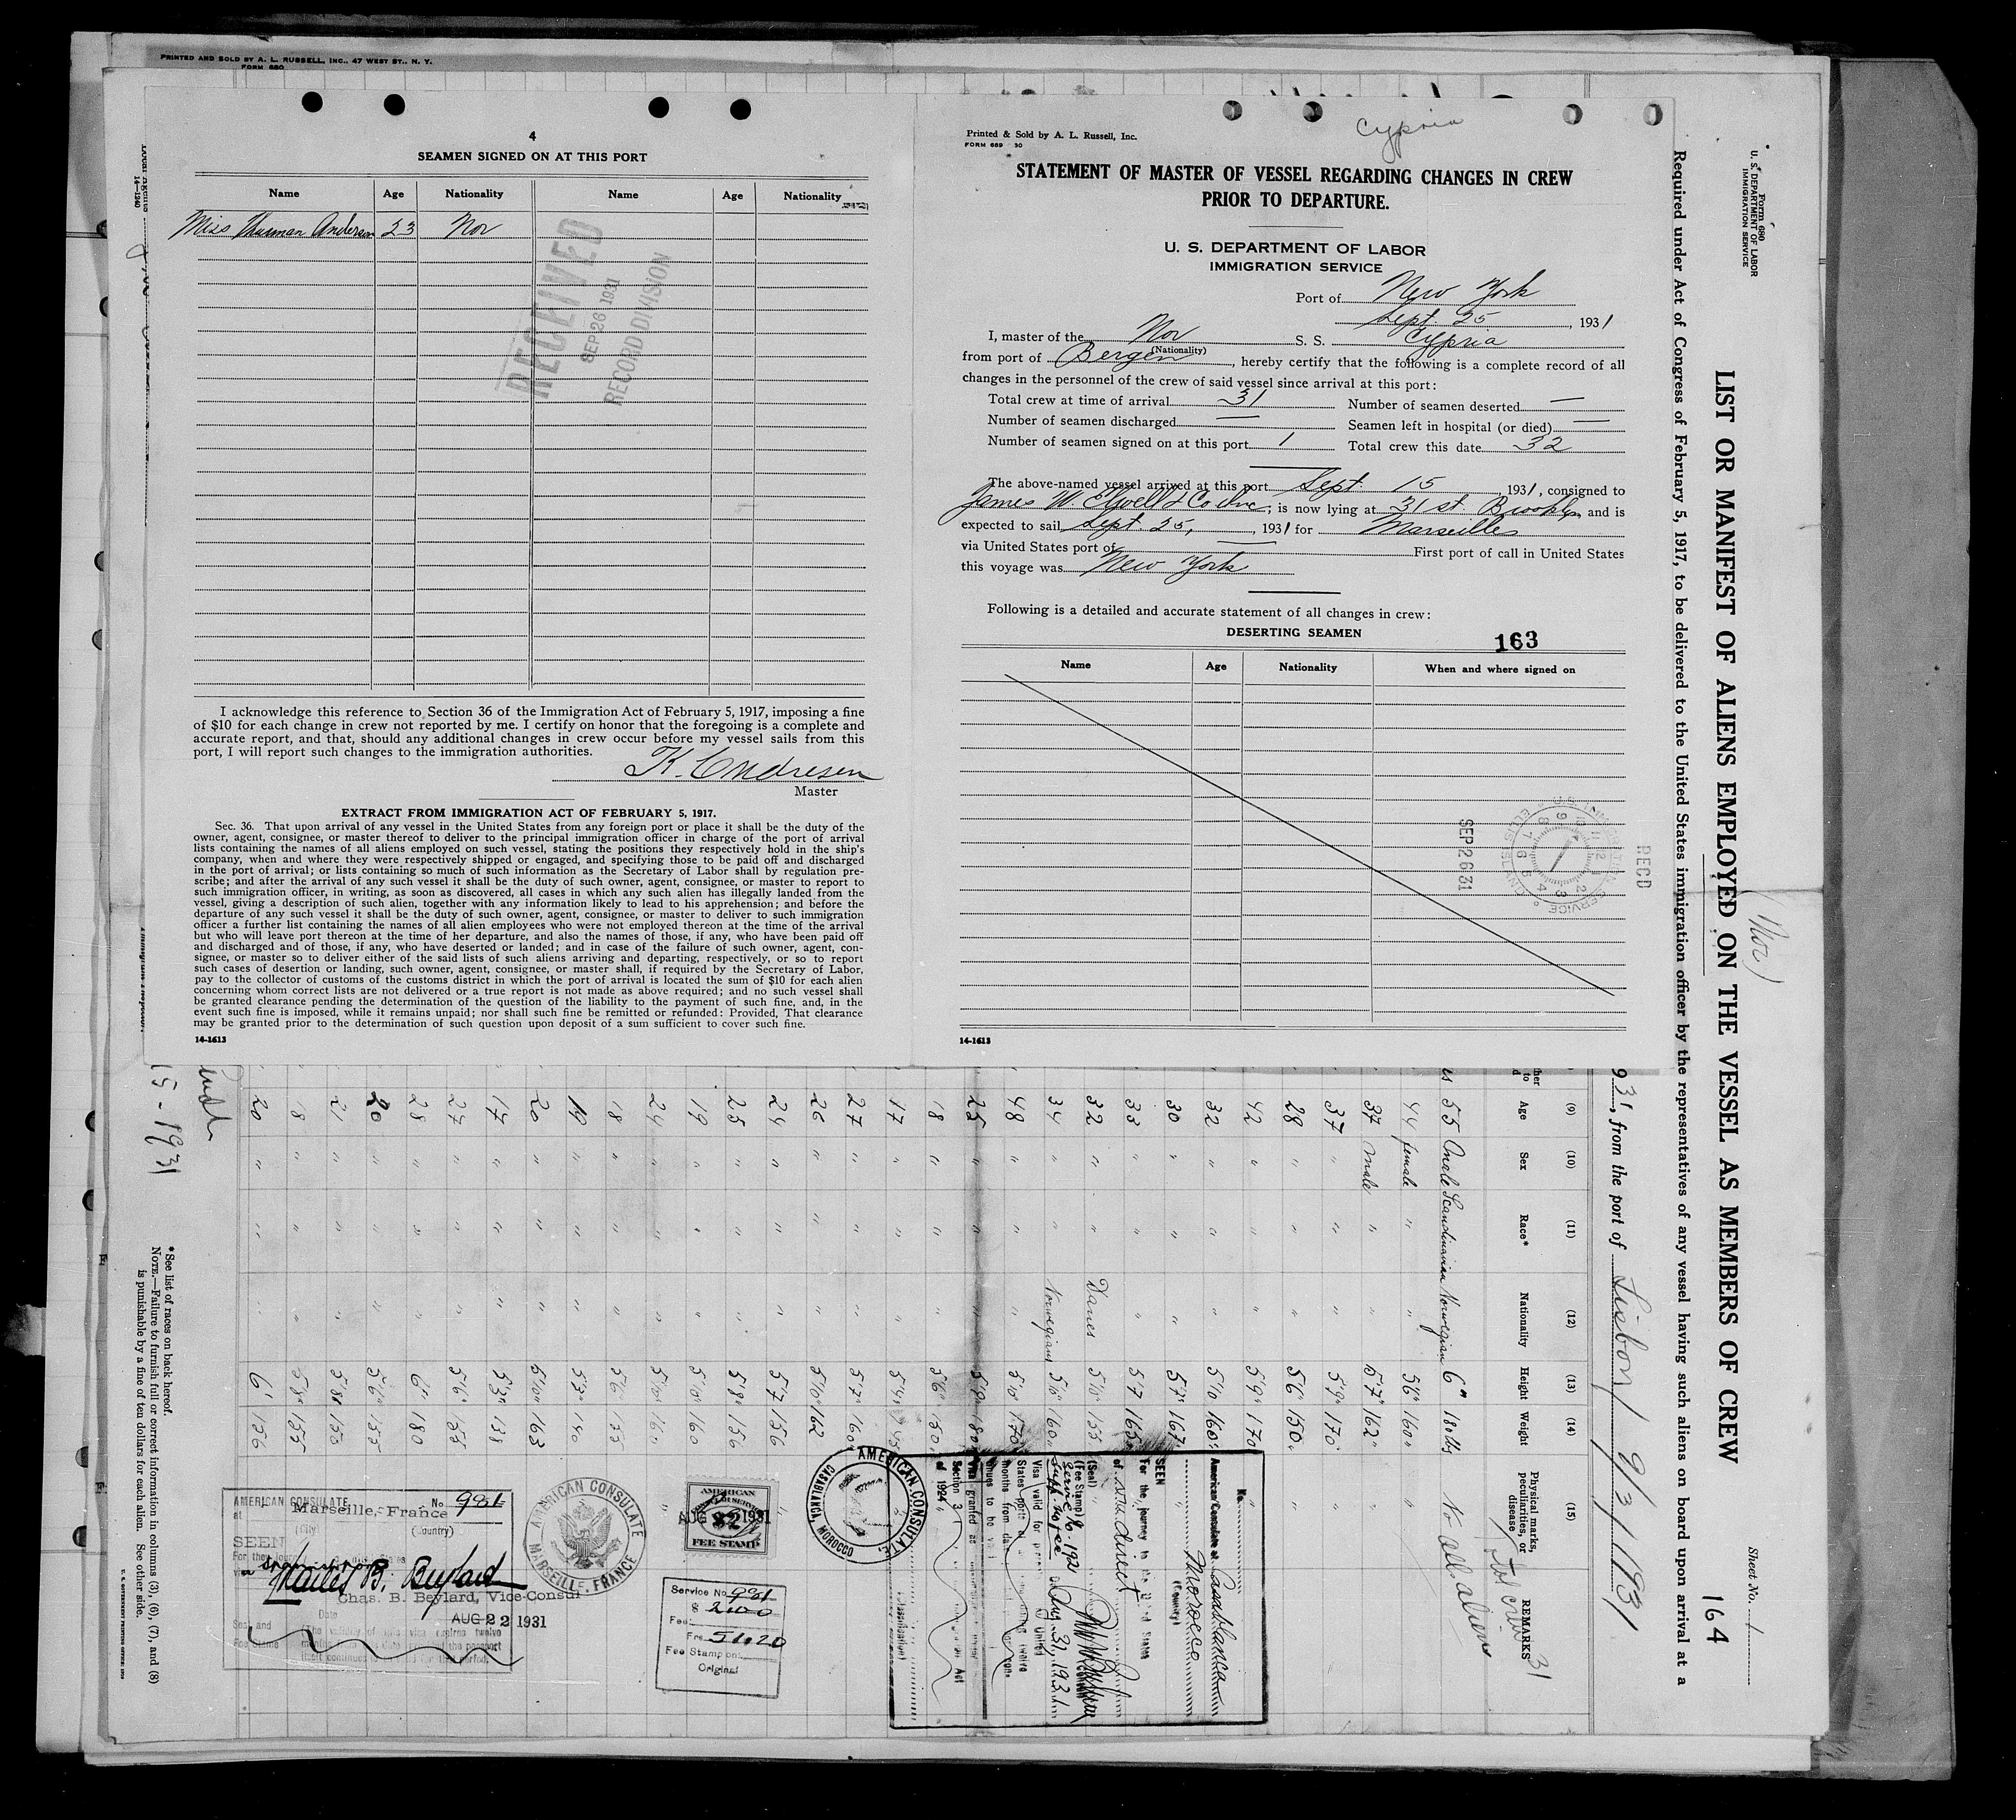 PRINTED AND SOLD BY A. L. RUSSELL, INC., 47 WEST ST., N. Y.
FORM 680
4
SEAMEN SIGNED ON AT THIS PORT
Name Age Nationality Name Age Nationality
Miss Anderson 23 Nor
RECEIVED
SEP 26 1931
RECORD DIVISION
I acknowledge this reference to Section 36 of the Immigration Act of February 5, 1917, imposing a fine
of $10 for each change in crew not reported by me. I certify on honor that the foregoing is a complete and
accurate report, and that, should any additional changes in crew occur before my vessel sails from this
port, I will report such changes to the immigration authorities.
K. Andresen
Master
EXTRACT FROM IMMIGRATION ACT OF FEBRUARY 5, 1917.
Sec. 36. That upon arrival of any vessel in the United States from any foreign port or place it shall be the duty of the
owner, agent, consignee, or master thereof to deliver to the principal immigration officer in charge of the port of arrival
lists containing the names of all aliens employed on such vessel, stating the positions they respectively hold in the ship's
company, when and where they were respectively shipped or engaged, and specifying those to be paid off and discharged
in the port of arrival; or lists containing so much of such information as the Secretary of Labor shall by regulation pre-
scribe; and after the arrival of any such vessel it shall be the duty of such owner, agent, consignee, or master to report to
such immigration officer, in writing, as soon as discovered, all cases in which any such alien has illegally landed from the
vessel, giving a description of such alien, together with any information likely to lead to his apprehension; and before the
departure of any such vessel it shall be the duty of such owner, agent, consignee, or master to deliver to such immigration
officer a further list containing the names of all alien employees who were not employed thereon at the time of the arrival
but who will leave port thereon at the time of her departure, and also the names of those, if any, who have been paid off
and discharged and of those, if any, who have deserted or landed; and in case of the failure of such owner, agent, con-
signee, or master so to deliver either of the said lists of such aliens arriving and departing, respectively, or so to report
such cases of desertion or landing, such owner, agent, consignee, or master shall, if required by the Secretary of Labor,
pay to the collector of customs of the customs district in which the port of arrival is located the sum of $10 for each alien
concerning whom correct lists are not delivered or a true report is not made as above required; and no such vessel shall
be granted clearance pending the determination of the question of the liability to the payment of such fine, and, in the
event such fine is imposed, while it remains unpaid; nor shall such fine be remitted or refunded: Provided, That clearance
may be granted prior to the determination of such question upon deposit of a sum sufficient to cover such fine.
14-1613
Cypria
Printed & Sold by A. L. Russell, Inc.
FORM 689 30
STATEMENT OF MASTER OF VESSEL REGARDING CHANGES IN CREW
PRIOR TO DEPARTURE.
U. S. DEPARTMENT OF LABOR
IMMIGRATION SERVICE
Port of New York
Sept. 25, 1931
I, master of the Nor S. S. Cypria
(Nationality)
from port of Bergen, hereby certify that the following is a complete record of all
changes in the personnel of the crew of said vessel since arrival at this port:
Total crew at time of arrival 31 Number of seamen deserted —
Number of seamen discharged — Seamen left in hospital (or died) —
Number of seamen signed on at this port 1 Total crew this date 32
The above-named vessel arrived at this port Sept. 15, 1931, consigned to
James W. Elwell & Co Inc; is now lying at 31 st. Brooklyn and is
expected to sail Sept. 25, 1931 for Marseilles
via United States port of — First port of call in United States
this voyage was New York
Following is a detailed and accurate statement of all changes in crew:
DESERTING SEAMEN
163
Name Age Nationality When and where signed on
RECD
SEP 26 31
14-1613
Form 680
U. S. DEPARTMENT OF LABOR
IMMIGRATION SERVICE
Sheet No. 1
164
(Nor)
LIST OR MANIFEST OF ALIENS EMPLOYED ON THE VESSEL AS MEMBERS OF CREW
Required under Act of Congress of February 5, 1917, to be delivered to the United States immigration officer by the representatives of any vessel having such aliens on board upon arrival at a
931, from the port of Lisbon 9/3/1931
(9) (10) (11) (12) (13) (14) (15)
Age Sex Race* Nationality Height Weight Physical marks, peculiarities, or disease REMARKS
55 male Scandinavian Norwegian 6" 180 lbs
44 female " " 5'6" 160 "
37 male " " 5'7" 162 "
37 " " " 5'9" 170 "
28 " " " 5'6" 150 "
42 " " " 5'9" 170 "
32 " " " 5'10 160 "
30 " " " 5'7" 167 "
33 " " " 5'7 165 "
32 " " Danes 5'10" 155 "
34 " " Norwegians 5'10" 160 "
48 " " " 5'10" 170 "
25 " " " 5'9" 180 "
18 " " " 5'6" 150 "
17 " " " 5'4" 145
27 " " " 5'7" 160
26 " " " 5'10" 162
24 " " " 5'7 156
25 " " " 5'8" 156
19 " " " 5'10" 160
24 " " " 5'10" 160
18 " " " 5'6" 135
19 " " " 5'3" 140
20 " " " 5'10" 163
17 " " " 5'3" 138
27 " " " 5'6" 155
28 " " " 6" 180
20 " " " 5'6" 155
21 " " " 5'8" 150
18 " " " 5'8" 155
20 " " " 6' 156
31
No all aliens
15-1931
No.
American Consulate at Casablanca
Morocco
(Country)
SEEN
For the journey to the United States
(Seal)
(Fee Stamp)
Service No. 192
Supp. No fee
Aug. 31, 1931
Section 3 of Act
of 1924
AMERICAN CONSULATE
CASABLANCA, MOROCCO
AMERICAN
CONSULAR SERVICE
$2
AUG 22 1931
FEE STAMP
Service No. 991
$ 2.00
Fee:
Frs. 51.20
Fee Stamp on:
Original
AMERICAN CONSULATE
MARSEILLE, FRANCE
AMERICAN CONSULATE No. 991
at Marseille, France
(City) (Country)
SEEN
Charles B. Beylard
Chas. B. Beylard, Vice-Consul
Date AUG 22 1931
The validity of this visa expires twelve
*See list of races on back hereof.
NOTE.—Failure to furnish full or correct information in columns (3), (6), (7), and (8)
is punishable by a fine of ten dollars for each alien. See other side.